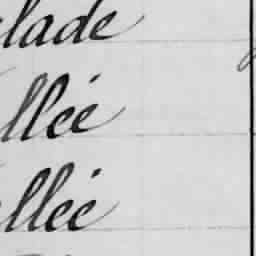 lade
llée
llée